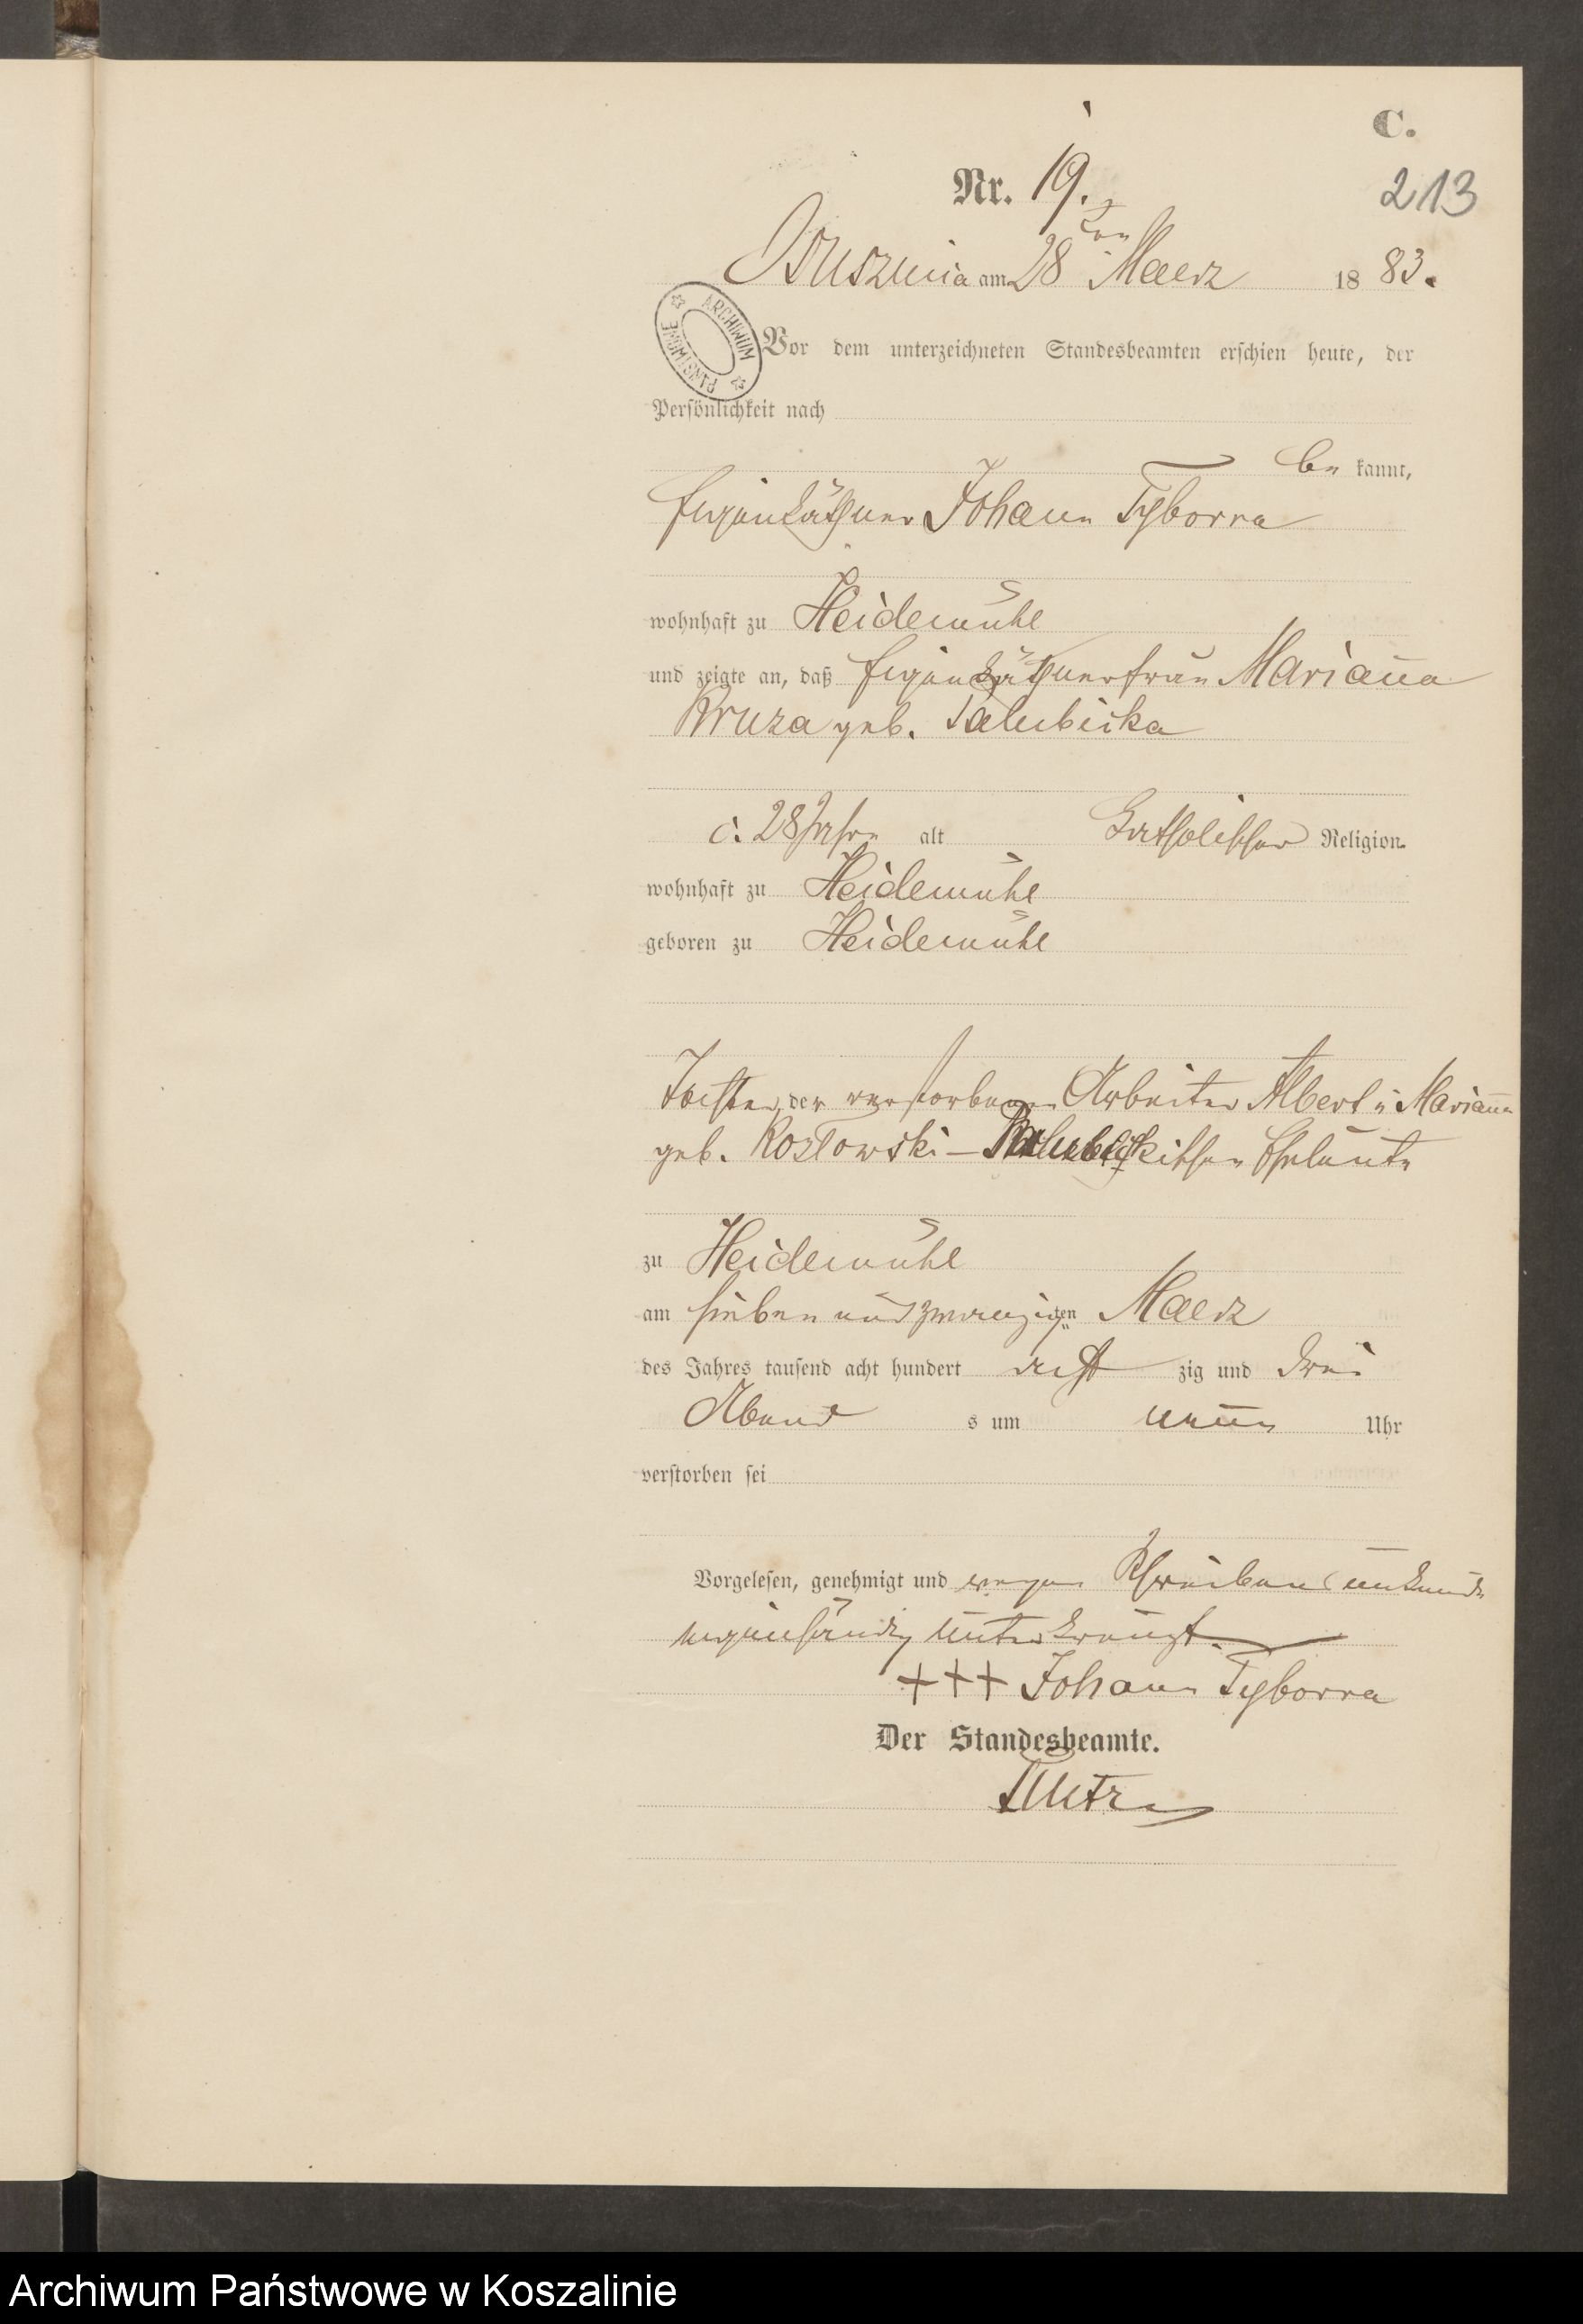 C.
Nr. 19.
213
Ossusznica am 28ten Maerz 1883.
ARCHIWUM PAŃSTWOWE
Vor dem unterzeichneten Standesbeamten erschien heute, der
Persönlichkeit nach
be kannt,
Eigenkäthner Johann Tyborra
wohnhaft zu Heidemühl
und zeigte an, daß Eigenkäthnerfrau Marianna
Bruza geb. Palubicka
c. 28 Jahre alt Katholischer Religion
wohnhaft zu Heidemühl
geboren zu Heidemühl
Tochter der verstorbenen Arbeiter Albert u Marianna
geb. Kozlowski – Palubickischen Eheleute
zu Heidemühl
am sieben und zwanzigsten Maerz
des Jahres tausend acht hundert acht zig und drei
Abend s um neun Uhr
verstorben sei
Vorgelesen, genehmigt und wegen Schreibensunkunde
eigenhändig unterkreuzt.
+++ Johann Tyborra
Der Standesbeamte.
Archiwum Państwowe w Koszalinie